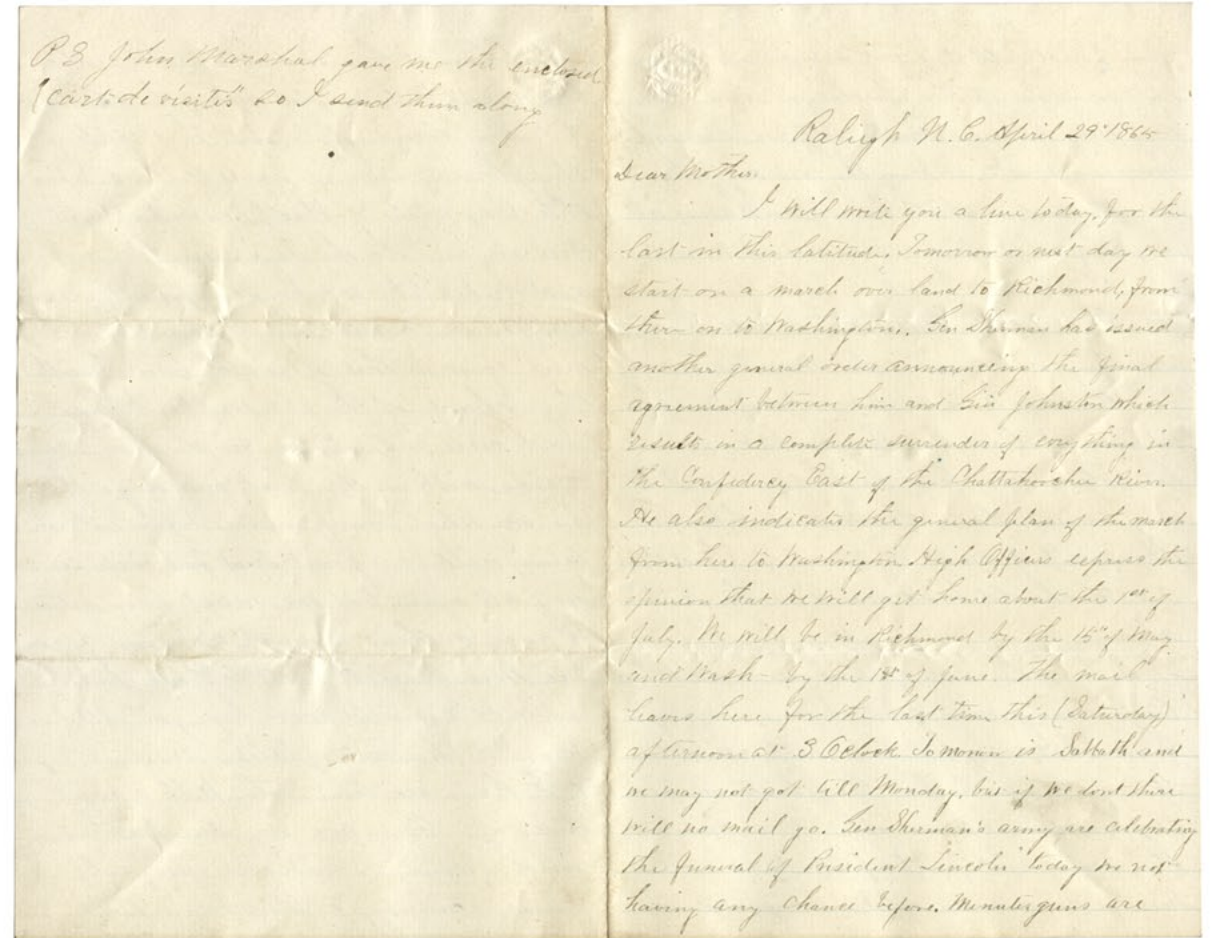 P S John Marshal gave me the enclosed
"cart de visitis" so I send them along
Raleigh N. C. April 29" 1865
Dear Mother.
I will write you a line today, for the
last in this latitude. Tomorrow or next day we
start on a march over land to Richmond, from
there on to Washington. Gen Sherman has issued
another general order announcing the final
agreement between him and Gen Johnston which
results in a complete surrender of evrything in
the Confedercy East of the Chattahoochee River.
He also indicates the general plan of the march
from here to Washington High Officers express the
opinion that we will get home about the 1st of
July. We will be in Richmond by the 15" of May
and Wash- by the 1st of June. The mail
leaves here for the last time this (Saturday)
afternoon at 3 Oclock. Tomorrow is Sabbath and
we may not got till Monday, but if we dont there
will no mail go. Gen Sherman's army are celebrating
the funeral of President Lincoln today we not
having any chance before. Minute guns are